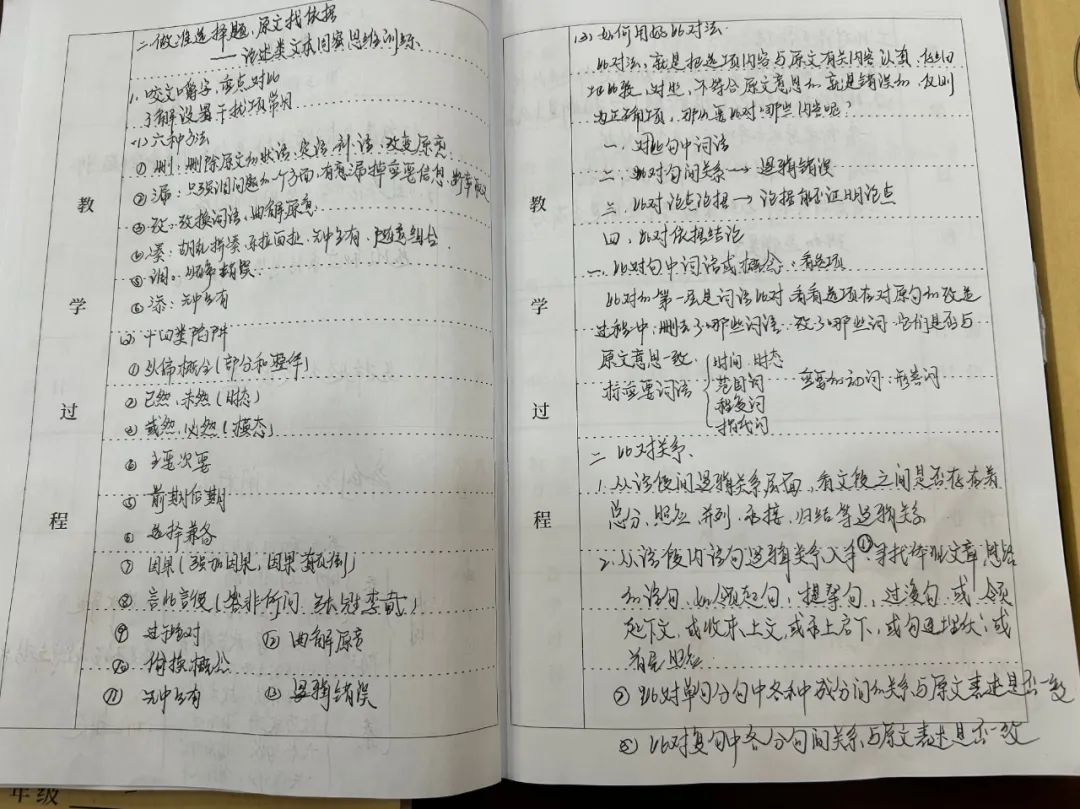 教学过程
二、做准选择题,原文找依据
——论述类文本因案思维训练
1. 咬文嚼字,重点对比
了解设置干扰项常用
(1) 六种方法
①删:删除原文的状语,定语,补语,改变原意
②漏:只强调问题的一个方面,有意漏掉重要信息,断章取义
③改:改换词语,曲解原意
④凑:胡乱拼凑,东拉西扯,无中生有,随意组合
⑤调:顺序错误
⑥添:无中生有
(2) 十四类陷阱
①以偏概全(部分和整体)
②已然,未然(时态)
③或然,必然(模态)
④主要次要
⑤前期后期
⑥选择兼备
⑦因果(强加因果,因果颠倒)
⑧言此言彼(答非所问,张冠李戴)
⑨过于绝对 曲解原意
⑩偷换概念
⑪无中生有 ⑫逻辑错误
教学过程
(3) 如何用好比对法
比对法,就是把选项内容与原文有关内容认真,仔细
地比较,对照,不符合原文意思的就是错误的,反则
为正确项,那么要比对哪些内容呢?
一、对比句中词语
二、比对句间关系→逻辑错误
三、比对论点论据→论据能否证明论点
四、比对依据结论
一、比对句中词语或概念:看选项
比对的第一层是词语比对,看看选项在对原句的改造
过程中,删去了哪些词语,改了哪些词,它们是否与
原文意思一致.
指重要词语
时间,时态
范围词
程度词
指代词
重要的动词,形容词
二 比对关系.
1. 从语段间逻辑关系层面,看文段之间是否存在着
总分,照应,并列,承接,归结等逻辑关系
2. 从语段内语句逻辑关系入手①寻找体现文章思路
的语句,如领起句,提挈句,过渡句,或领
起下文,或收束上文,或承上启下,或勾连埋伏,或
前后照应
②比对单句分句中各种成分间的关系与原文表述是否一致
③比对复句中各分句间关系与原文表述是否一致
年级